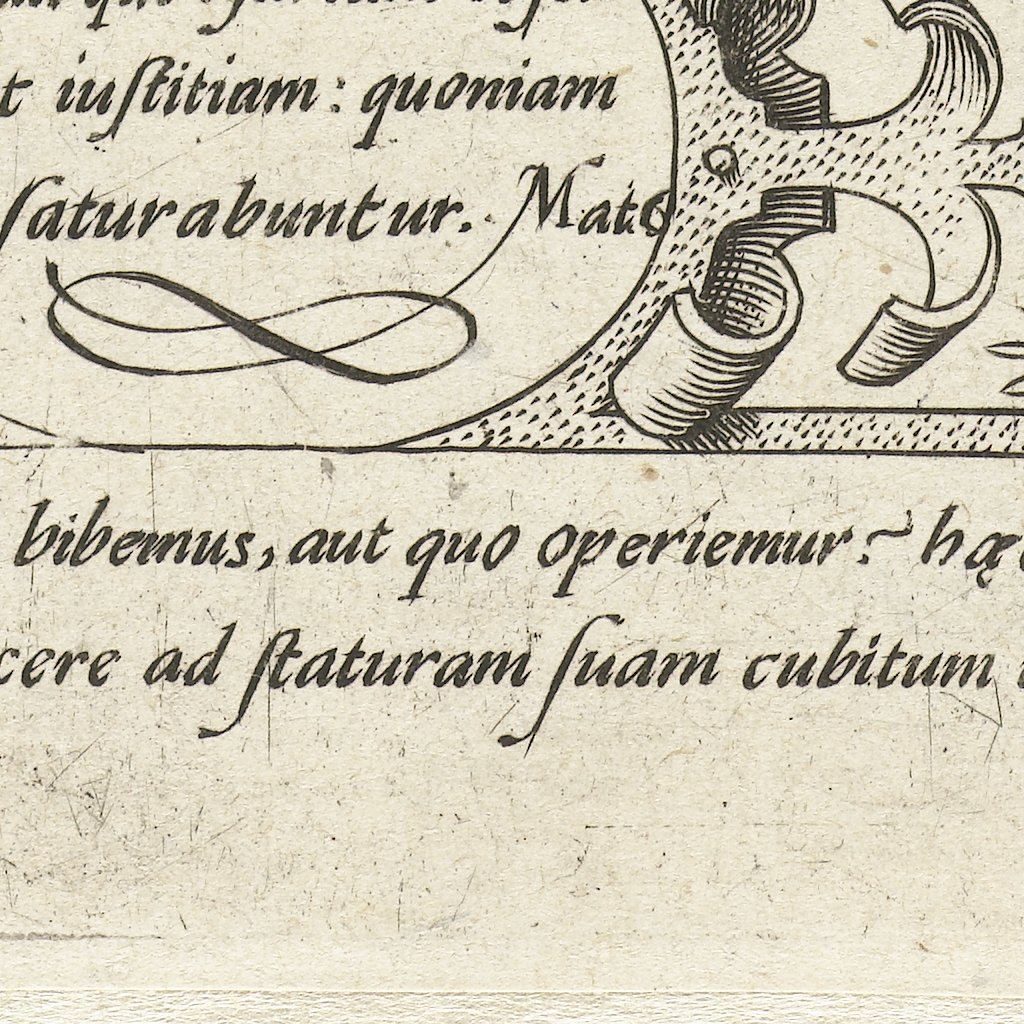 t iuſtitiam: quoniam
ſaturabuntur. Mat.6
bibemus, aut quo operiemur? hæc
cere ad ſtaturam ſuam cubitum